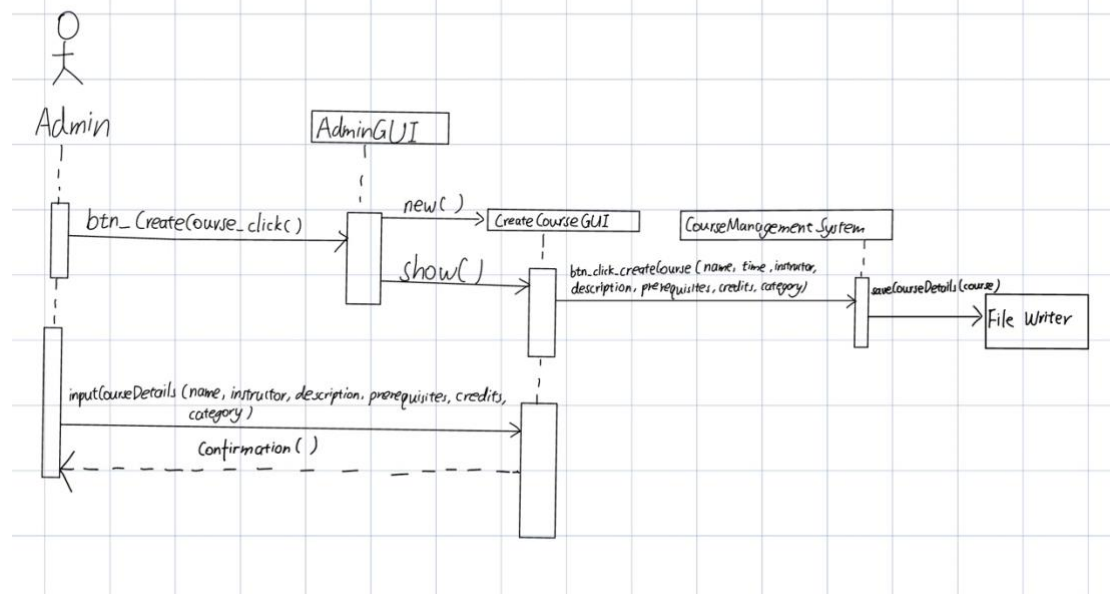 Admin
AdminGUI
btn_CreateCourse_click()
new()
Create Course GUI
CourseManagement System
show()
btn_click_createCourse (name, time, instructor,
description, prerequisites, credits, category)
saveCourseDetails (course)
File Writer
inputCourseDetails (name, instructor, description, prerequisites, credits,
category)
Confirmation ( )